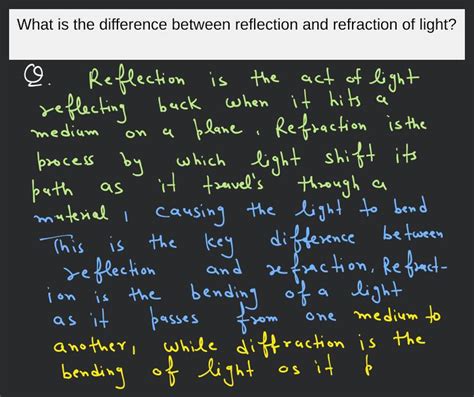 What is the difference between reflection and refraction of light?
Q. Reflection is the act of light
reflecting back when it hits a
medium on a plane, Refraction is the
process by which light shift its
path as it travel's through a
material, causing the light to bend
This is the key difference between
reflection and refraction, Refract-
ion is the bending of a light
as it passes from one medium to
another, while diffraction is the
bending of light as it p